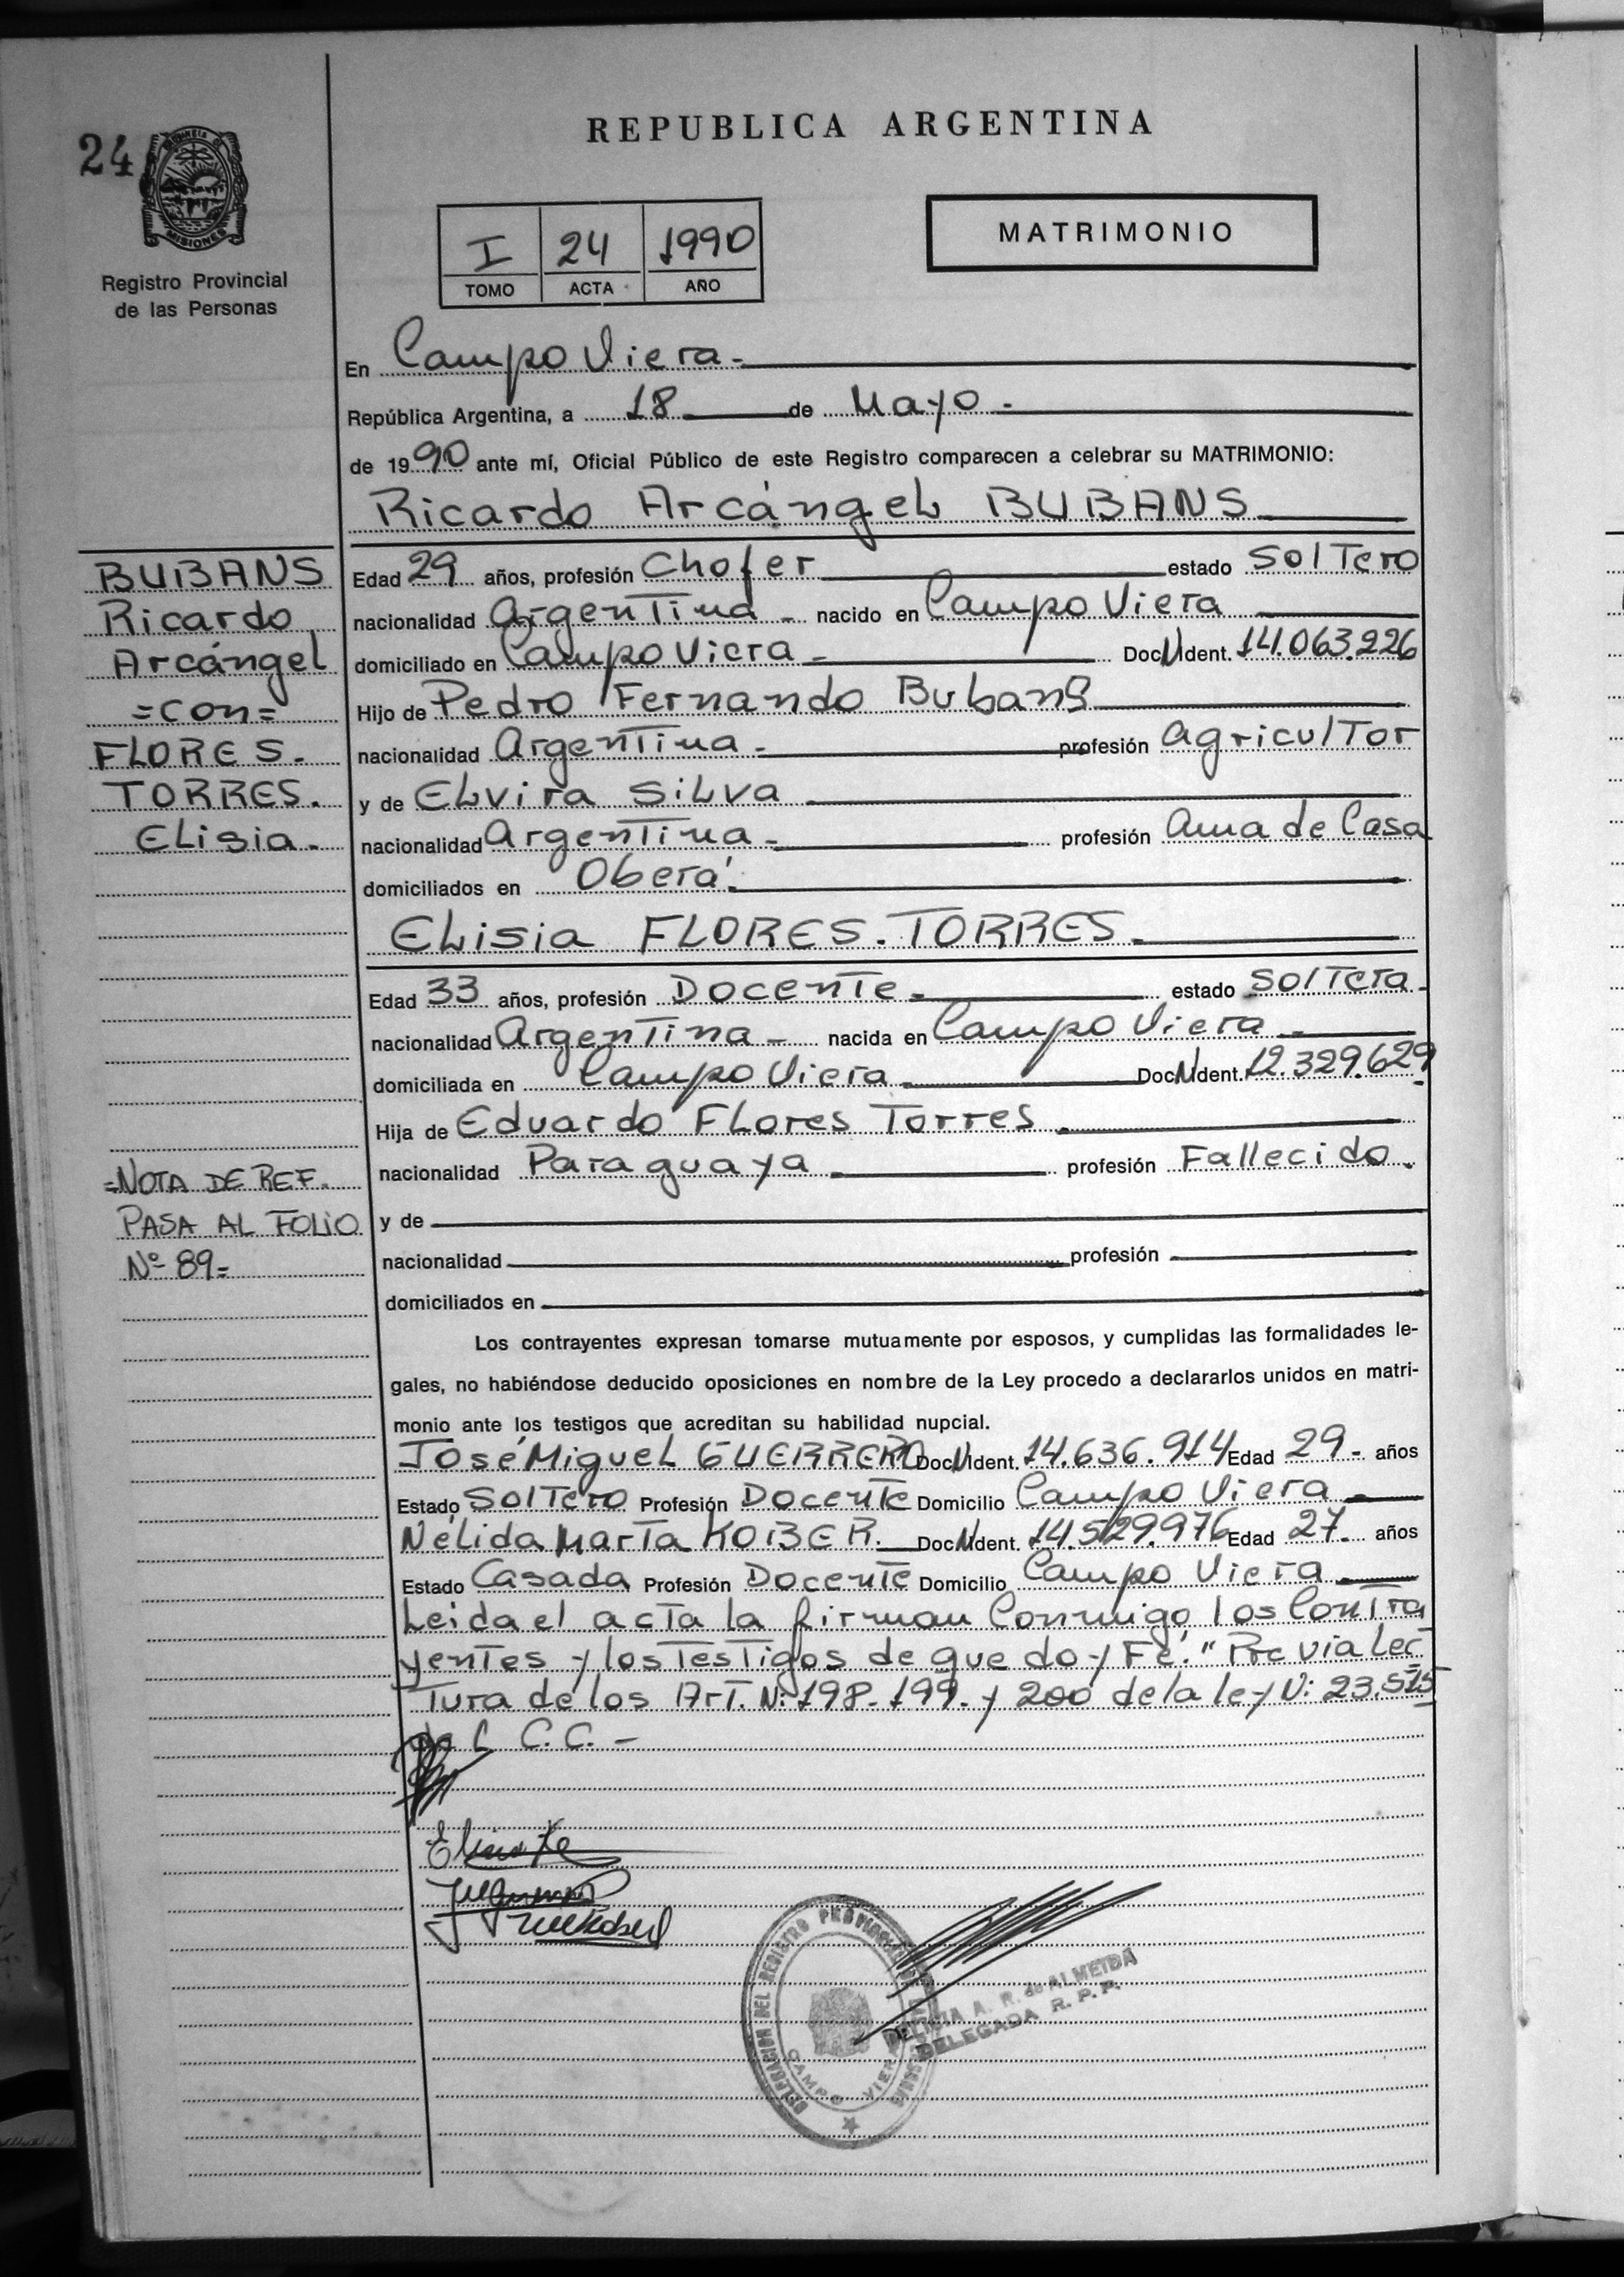 24
PROVINCIA
MISIONES
Registro Provincial
de las Personas
REPUBLICA ARGENTINA
I 24 1990
TOMO ACTA AÑO
MATRIMONIO
En Campo Viera.-
República Argentina, a 18 de Mayo.-
de 1990 ante mí, Oficial Público de este Registro comparecen a celebrar su MATRIMONIO:
Ricardo Arcángel BUBANS
BUBANS
Ricardo
Arcángel
=con=
FLORES.
TORRES.
Elisia.-
Edad 29 años, profesión Chofer estado Soltero
nacionalidad Argentina - nacido en Campo Viera
domiciliado en Campo Viera - Doc N Ident. 14.063.226
Hijo de Pedro Fernando Bubans
nacionalidad Argentina - profesión Agricultor
y de Elvira Silva
nacionalidad Argentina - profesión Ama de Casa
domiciliados en Oberá.
Elisia FLORES. TORRES.
Edad 33 años, profesión Docente. estado Soltera.
nacionalidad Argentina - nacida en Campo Viera -
domiciliada en Campo Viera Doc N Ident. 12.329.629
Hija de Eduardo Flores Torres
nacionalidad Paraguaya profesión Fallecido.
=NOTA DE REF.
PASA AL FOLIO
Nº 89=
y de
nacionalidad profesión
domiciliados en
Los contrayentes expresan tomarse mutuamente por esposos, y cumplidas las formalidades le-
gales, no habiéndose deducido oposiciones en nombre de la Ley procedo a declararlos unidos en matri-
monio ante los testigos que acreditan su habilidad nupcial.
José Miguel GUERRERO Doc N Ident. 14.636.914 Edad 29- años
Estado Soltero Profesión Docente Domicilio Campo Viera
Nélida Marta KOBER. Doc N Ident. 14.529.976 Edad 27- años
Estado Casada Profesión Docente Domicilio Campo Viera
Leida el acta la firman Conmigo los Contra
yentes y los Testigos de que doy Fé." Previa Lec
Tura de los Art. N: 198-199- y 200 de la ley N: 23.515
del C.C. -
DELEGACION DEL REGISTRO PROVINCIAL
CAMPO VIERA
DELICIA A. R. de ALMEIDA
DELEGADA R. P. P.